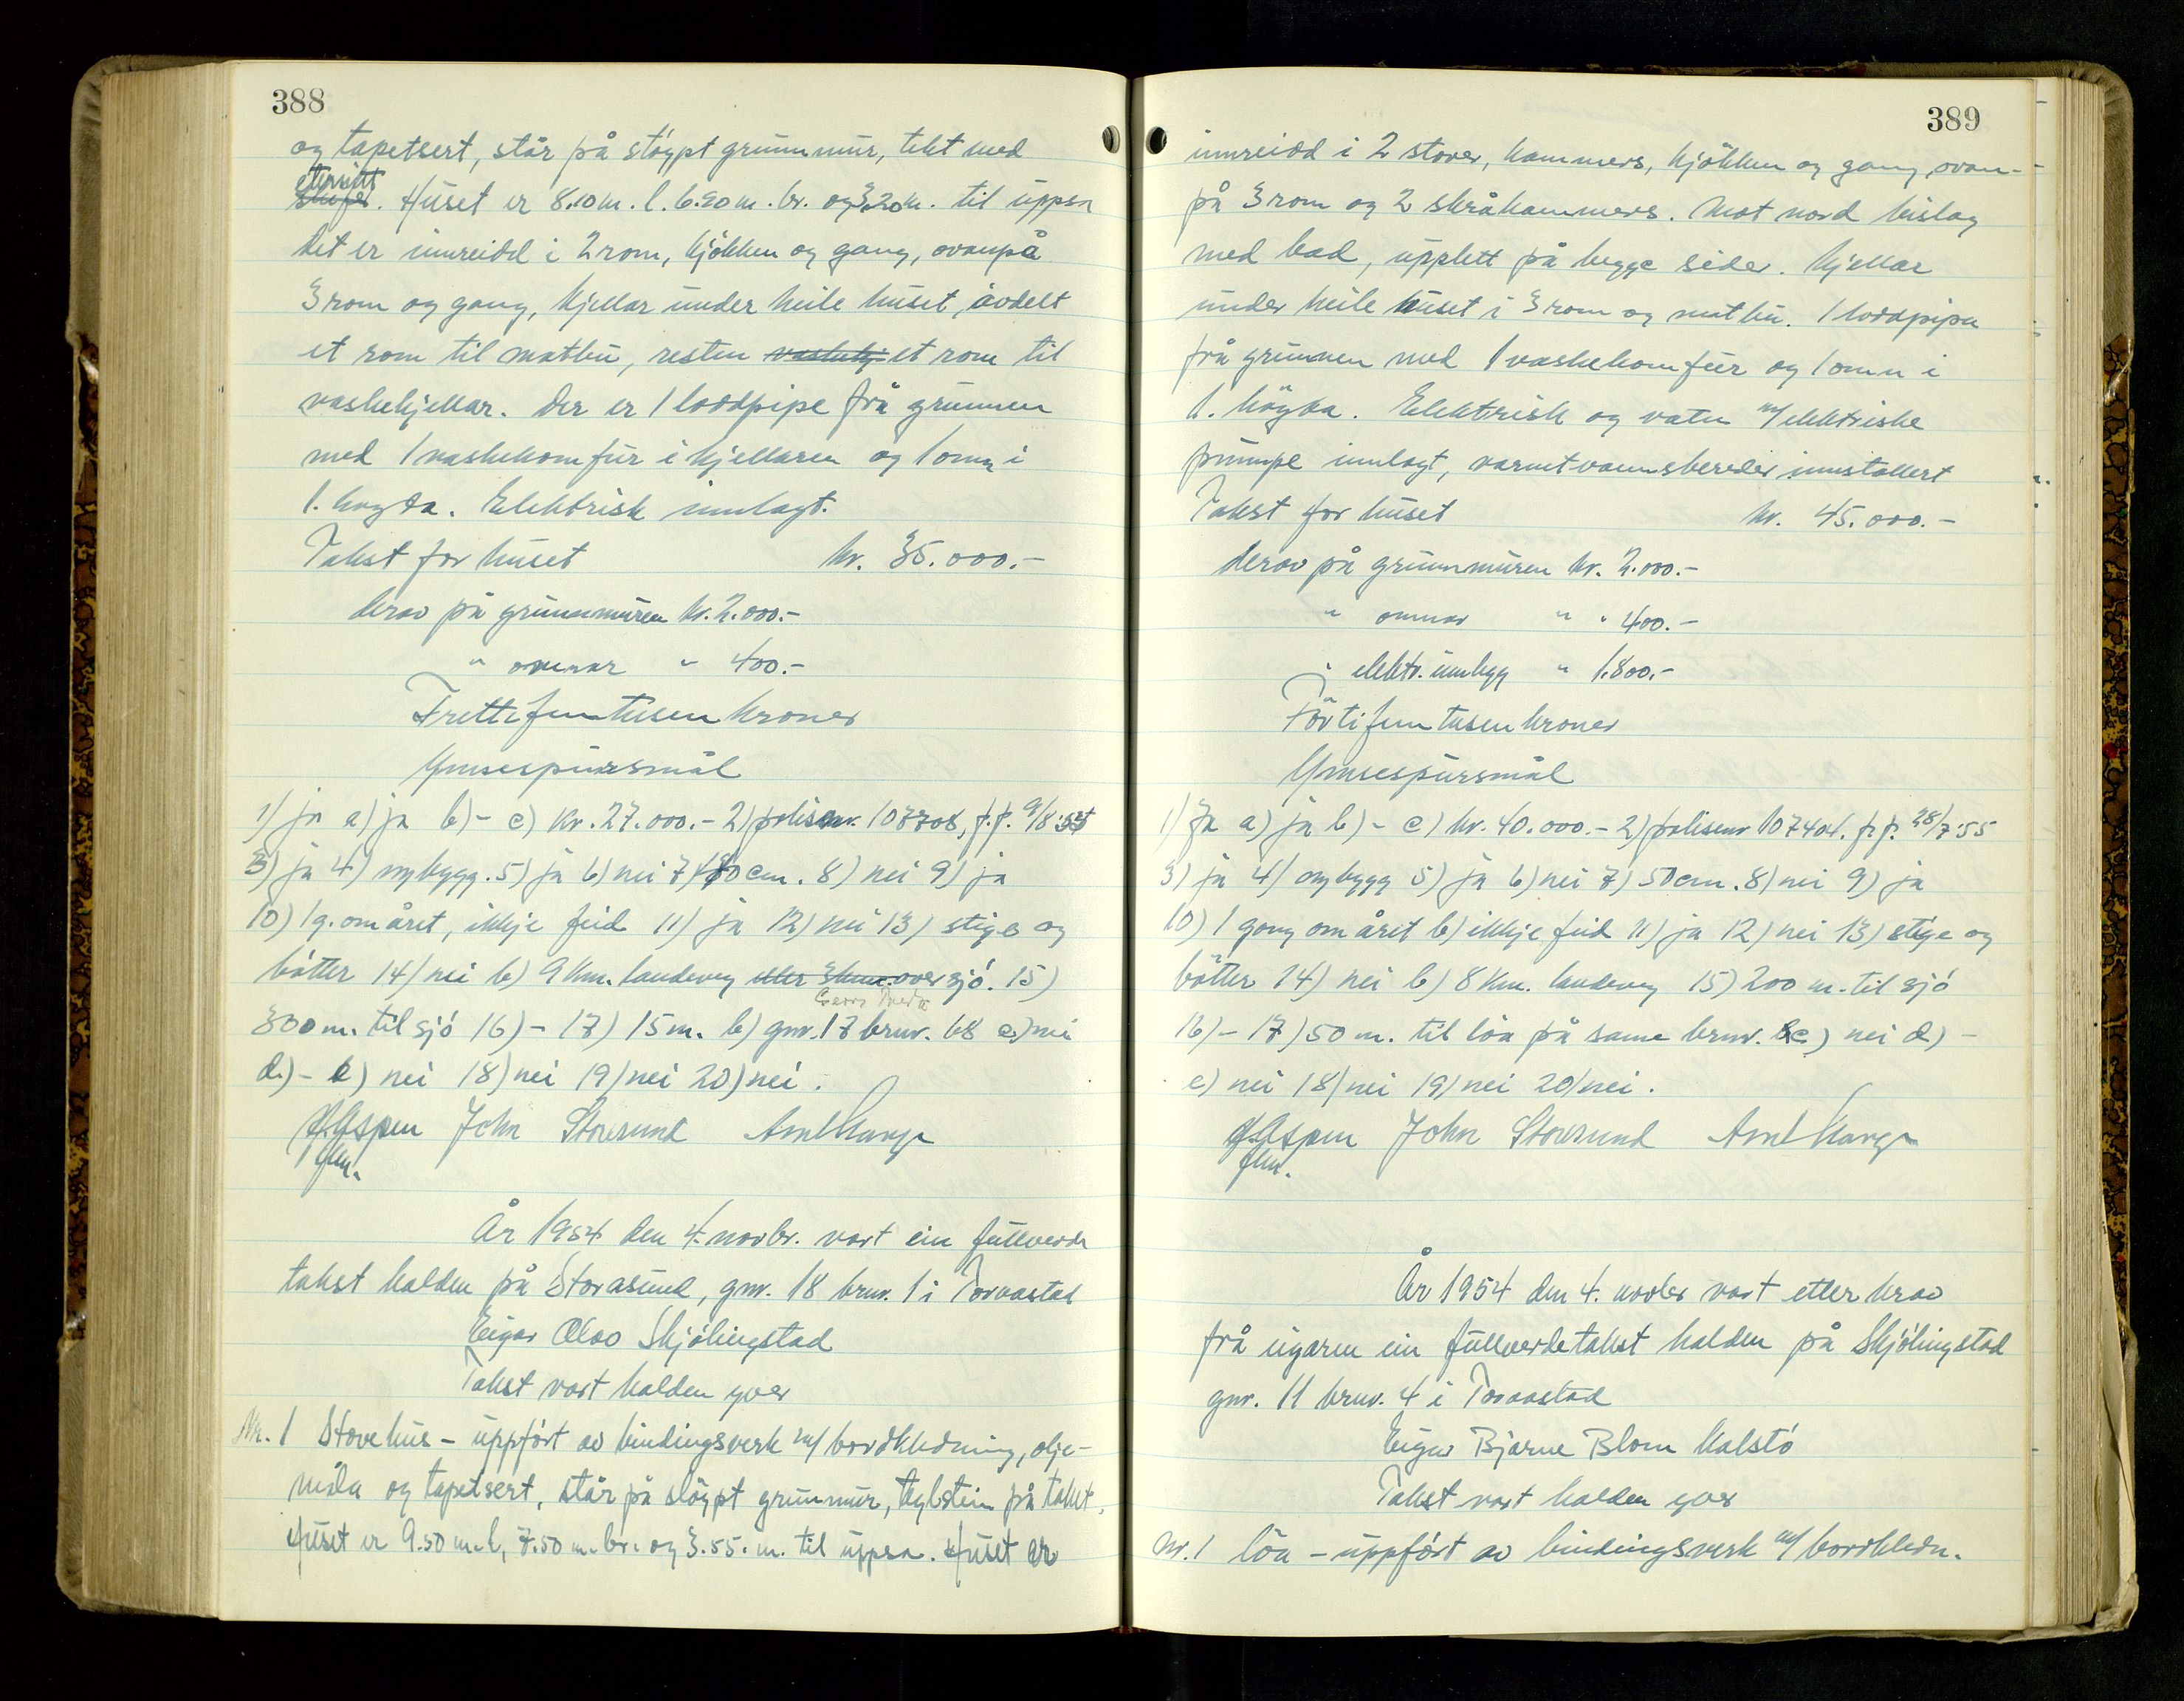 388
og tapetsert, står på støypt grunnmur, tekt med
eternitt
skifer. Huset er 8.10 m. l. 6.20 m. br. og 3.20 m. til uppsa
det er innreidd i 2 rom, kjøkken og gang, ovanpå
3 rom og gang, kjellar under heile huset, avdelt
et rom til matbu, resten vaskekj. et rom til
vaskekjellar. Der er 1 loddpipe frå grunnen
med 1 vaskekomfur i kjellaren og 1 omn i
1. høgda. Elektrisk innlagt.
Takst for huset kr. 35.000.-
derav på grunnmuren kr. 2.000.-
" omnar " 400.-
Trettifemtusen kroner
Ymsespursmål
1) ja a) ja b) - c) kr. 27.000.- 2) polisenr. 107708, f.f. 9/8.54
3) ja 4) nybygg. 5) ja 6) nei 7) 40 cm. 8) nei 9) ja
10) 1 g. om året, ikkje feid 11) ja 12) nei 13) stige og
bøtter 14) nei b) 9 Km. landeveg eller 3 km. over sjø. 15)
300 m. til sjø 16) - 17) 15 m. b) gnr. 17 brnr. 68 c) nei
d.) - e) nei 18) nei 19) nei 20) nei.
Aspen John Storesund
fm.
År 1954 den 4. novbr. vart ein fullverde
takst halden på Storasund, gnr. 18 brnr. 1 i Torvastad
Eigar Olav Skjølingstad
Takst vart halden yver
Nr. 1 Stovehus - uppført av bindingsverk m/ bordkledning, olje-
måla og tapetsert, står på støypt grunnmur, teglstein på taket.
Huset er 9.50 m. l, 7.50 m. br. og 3.55. m. til uppsa. Huset er
389
innreidd i 2 stover, kammers, kjøkken og gang, ovan-
på 3 rom og 2 skråkammers. Mot nord bislag
med bad, upplett på begge sider. Kjellar
under heile huset i 3 rom og matbu. 1 loddpipa
frå grunnen med 1 vaskekomfur og 1 omn i
1. høgda. Elektrisk og vatn m/ elektriske
pumpe innlagt, varmtvannsbereder innstallert
Takst for huset kr. 45.000.-
derav på grunnmuren kr. 2.000.-
" omnar " " 400.-
" elektr. innlegg " 1.800.-
Førtifemtusen kroner
Ymsespursmål
1) Ja a) ja b) - c) kr. 40.000.- 2) polisenr 107404. f.f. 28/7.55
3) ja 4) nybygg 5) ja 6) nei 7) 50 cm. 8) nei 9) ja
10) 1 gong om året b) ikkje feid 11) ja 12) nei 13) stige og
bøtter 14) nei b) 8 Km. landeveg 15) 200 m. til sjø
16) - 17) 50 m. til løa på same brnr. c) nei d) -
e) nei 18) nei 19) nei 20) nei.
Aspen John Storesund
fm.
År 1954 den 4. novbr vart etter krav
frå eigaren ein fullverdetakst halden på Skjølingstad
gnr. 11 brnr. 4 i Torvastad
Eigar Bjarne Blom Kalstø
Takst vart halden yver
Nr. 1 løa - uppført av bindingsverk m/ bordkledn.